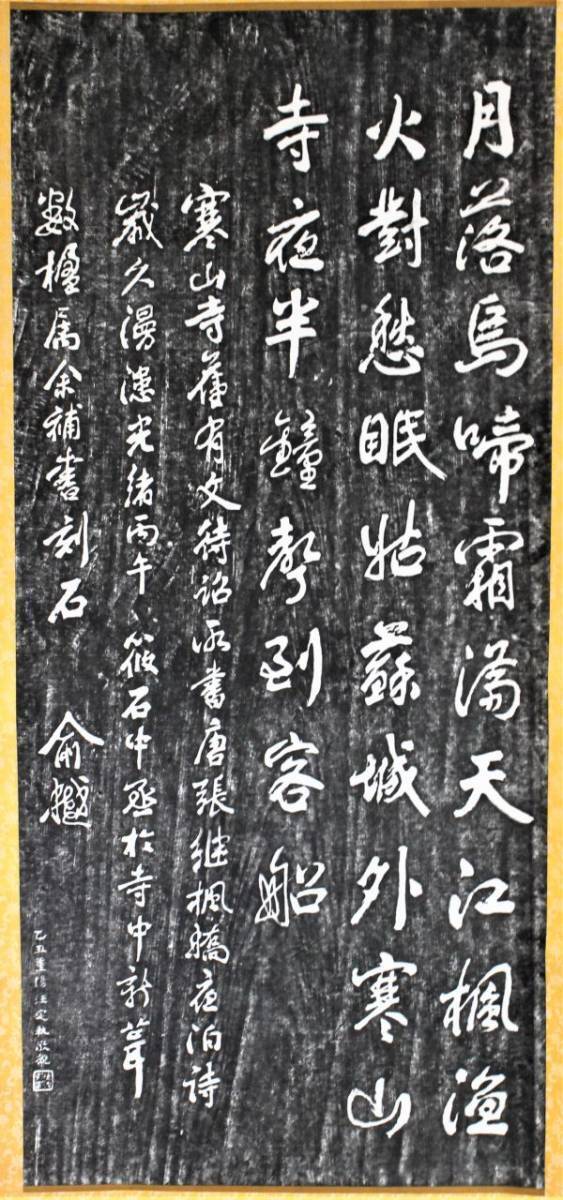 月落烏啼霜滿天江楓漁
火對愁眠姑蘇城外寒山
寺夜半鐘聲到客船
寒山寺舊有文待詔所書唐張继楓橋夜泊詩
歲久漫漶光緒丙午筱石中丞於寺中新葺
數楹属余補書刻石
俞樾